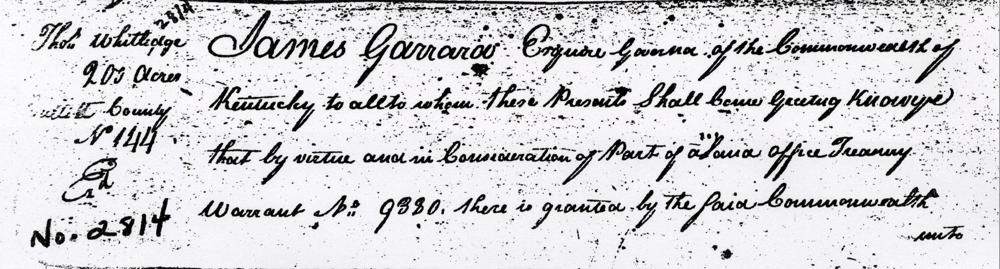 2814
Thos. Whitledge
203 Acres
County
No 144
Exd
No. 2814
James Garrard Esquire Governor of the Commonwealth of
Kentucky to all to whom these Presents Shall Come Greeting Know ye
that by virtue and in Consideration of Part of a Land office Treasury
Warrant No. 9380. there is granted by the Said Commonwealth
unto